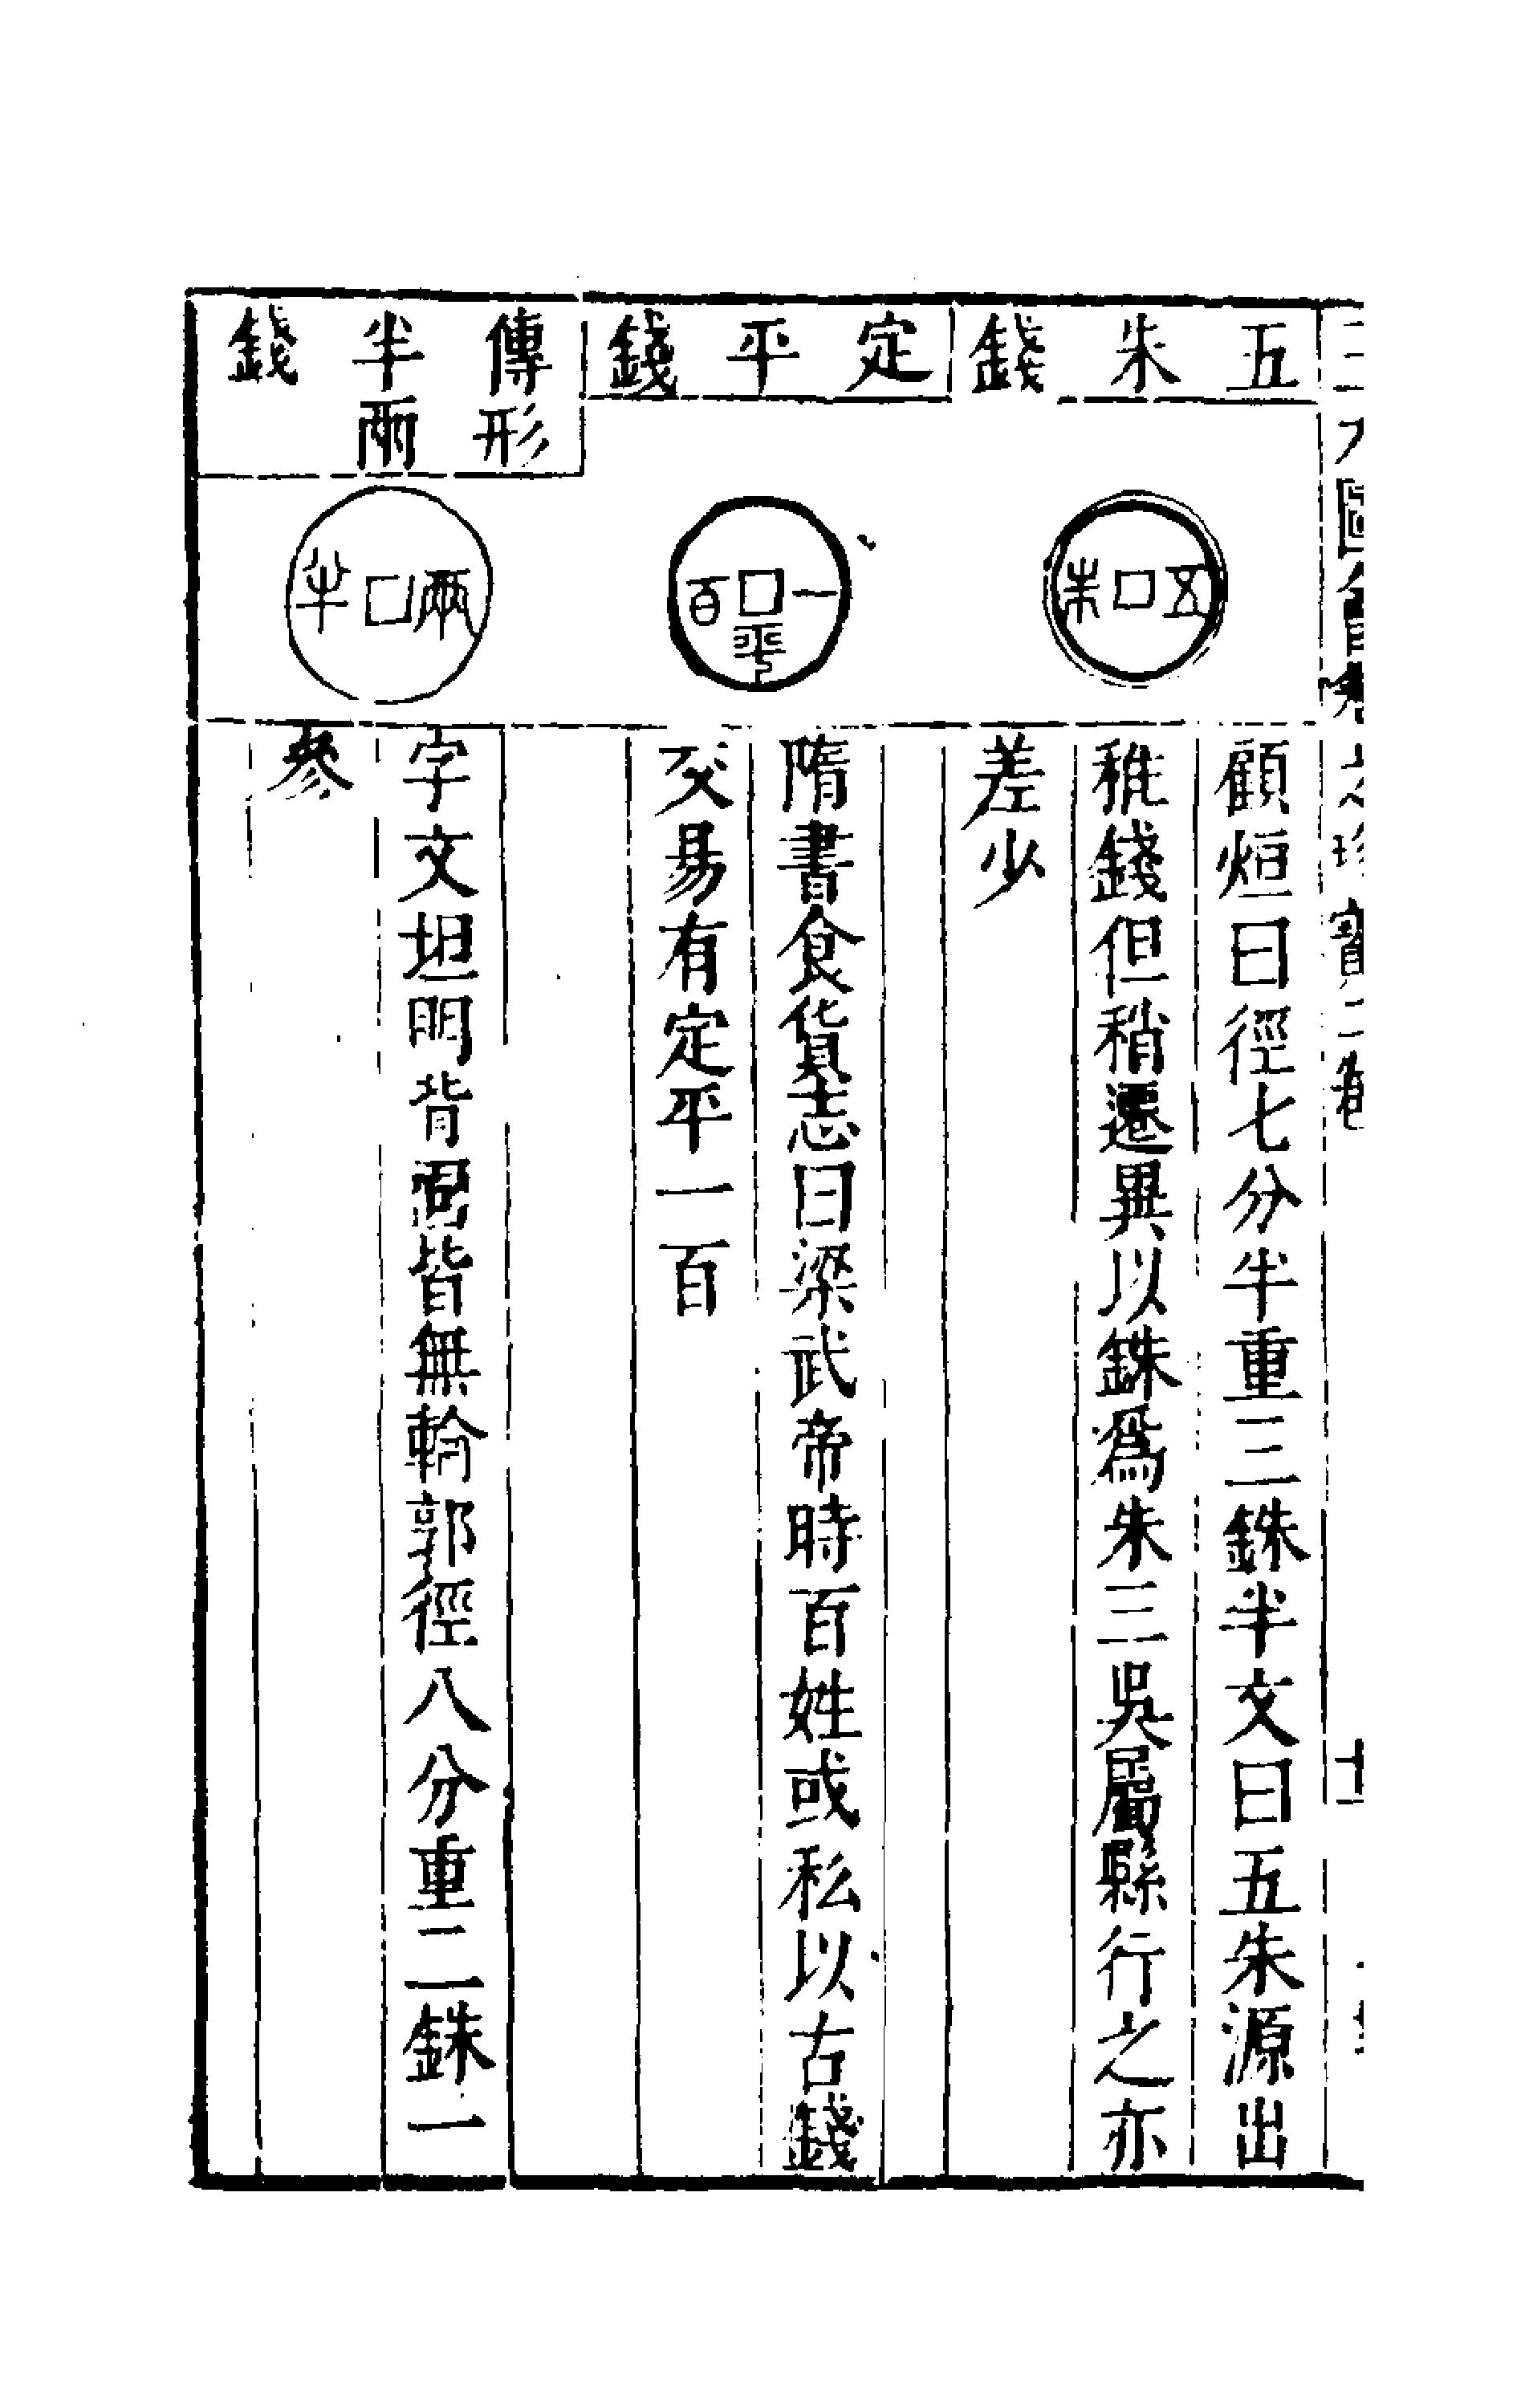 五朱錢
五 朱
顧烜曰徑七分半重三銖半文曰五朱源出
稚錢但稍遷異以銖爲朱三吳屬縣行之亦
差少
定平錢
一百平
隋書食貨志曰梁武帝時百姓或私以古錢
交易有定平一百
傳形半兩錢
兩 半
字文坦明背面皆無輪郭徑八分重二銖一
參